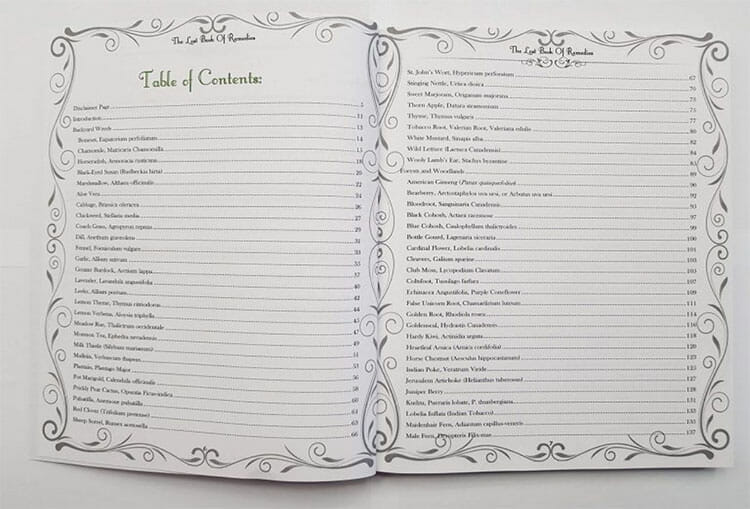 The Lost Book Of Remedies
Table of Contents:
Disclaimer Page 5
Introduction 11
Backyard Weeds 13
Boneset, Eupatorium perfoliatum 14
Chamomile, Matricaria Chamomilla 15
Horseradish, Armoracia rusticana 18
Black-Eyed Susan (Rudbeckia hirta) 20
Marshmallow, Althaea officinalis 22
Aloe Vera 24
Cabbage, Brassica oleracea 26
Chickweed, Stellaria media 27
Couch Grass, Agropyron repens 29
Dill, Anethum graveolens 31
Fennel, Foeniculum vulgare 33
Garlic, Allium sativum 35
Greater Burdock, Arctium lappa 37
Lavender, Lavandula angustifolia 40
Leeks, Allium porrum 42
Lemon Theme, Thymus citriodorus 44
Lemon Verbena, Aloysia triphylla 45
Meadow Rue, Thalictrum occidentale 47
Mormon Tea, Ephedra nevadensis 49
Milk Thistle (Silybum marianum) 51
Mullein, Verbascum thapsus
Plantain, Plantago Major
Pot Marigold, Calendula officinalis 56
Prickly Pear Cactus, Opuntia Ficus-indica 58
Pulsatilla, Anemone pulsatilla 60
Red Clover (Trifolium pretense) 61
Sheep Sorrel, Rumex acetosella
66
The Lost Book Of Remedies
St. John's Wort, Hypericum perforatum 67
Stinging Nettle, Urtica dioica 70
Sweet Marjoram, Origanum majorana 73
Thorn Apple, Datura stramonium 75
Thyme, Thymus vulgaris 77
Tobacco Root, Valerian Root, Valeriana edulis 80
White Mustard, Sinapis alba 82
Wild Lettuce (Lactuca Canadensis) 84
Wooly Lamb's Ear, Stachys byzantine 85
Forests and Woodlands 89
American Ginseng (Panax quinquefolius) 90
Bearberry, Arctostaphylos uva ursi, or Arbutus uva ursi 92
Bloodroot, Sanguinaria Canadensis 93
Black Cohosh, Actaea racemose 97
Blue Cohosh, Caulophyllum thalictroides 99
Bottle Gourd, Lagenaria siceraria 100
Cardinal Flower, Lobelia cardinalis 101
Cleavers, Galium aparine 103
Club Moss, Lycopodium Clavatum 105
Coltsfoot, Tussilago farfara 107
Echinacea Angustifolia, Purple Coneflower 109
False Unicorn Root, Chamaelirium luteum 111
Golden Root, Rhodiola rosea 114
Goldenseal, Hydrastis Canadensis 116
Hardy Kiwi, Actinidia arguta 118
Heartleaf Arnica (Arnica cordifolia) 120
Horse Chestnut (Aesculus hippocastanum) 122
Indian Poke, Veratrum Viride 125
Jerusalem Artichoke (Helianthus tuberosus) 127
Juniper Berry
Kudzu, Pueraria lobate, P. thunbergiana 131
Lobelia Inflata (Indian Tobacco) 133
Maidenhair Fern, Adiantum capillus-veneris 135
Male Fern, Dryopteris Filix-mas 137